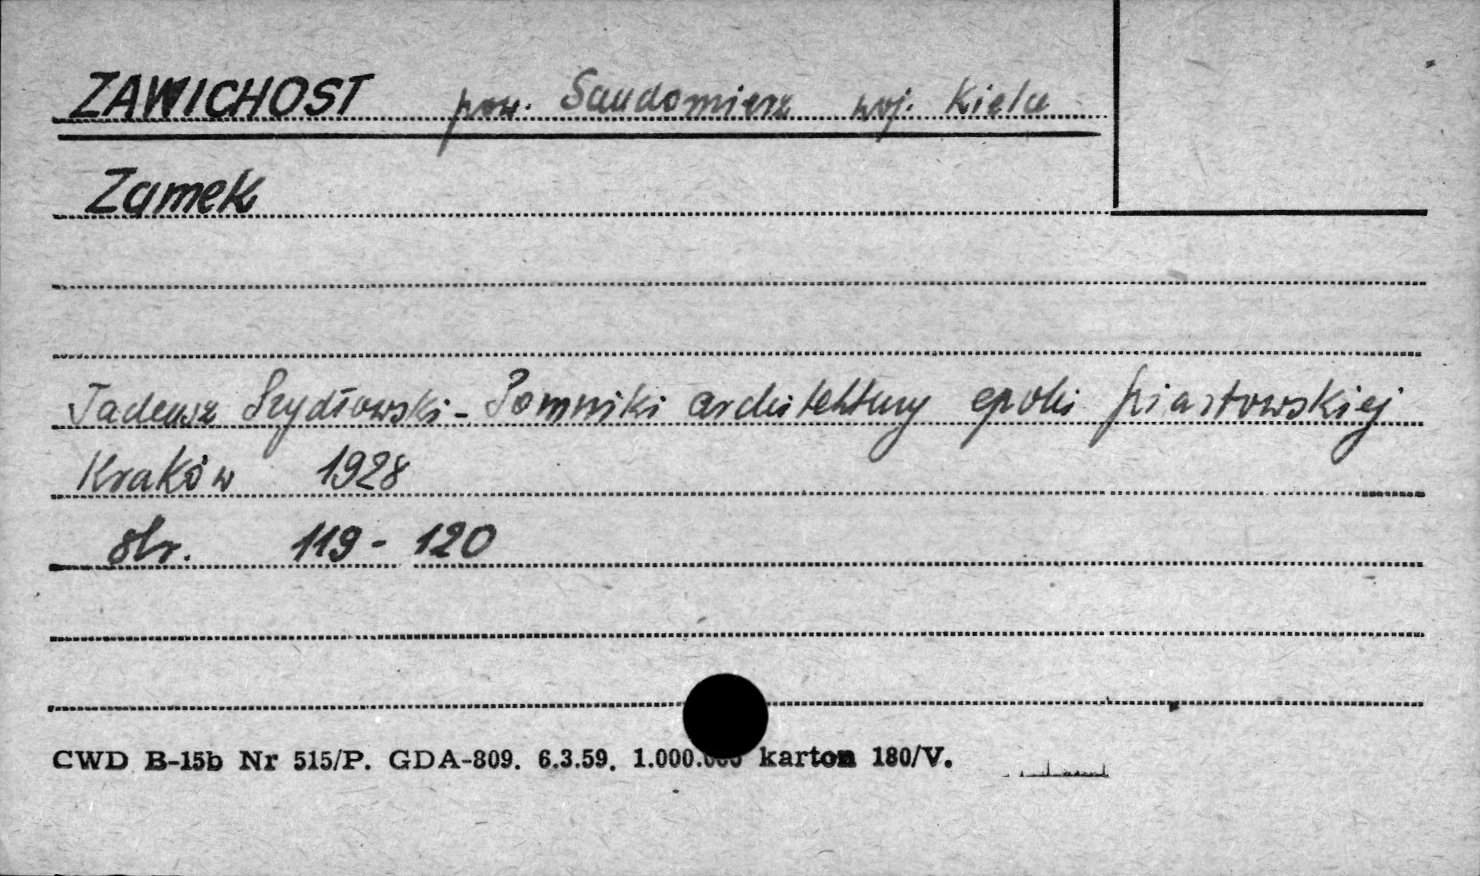 ZAWICHOST pow. Sandomierz woj. Kielce
Zamek
Tadeusz Szydłowski - Pomniki architektury epoki piastowskiej
Kraków 1928
str. 119 - 120
CWD B-15b Nr 515/P. GDA-809. 6.3.59. 1.000.000 karton 180/V.